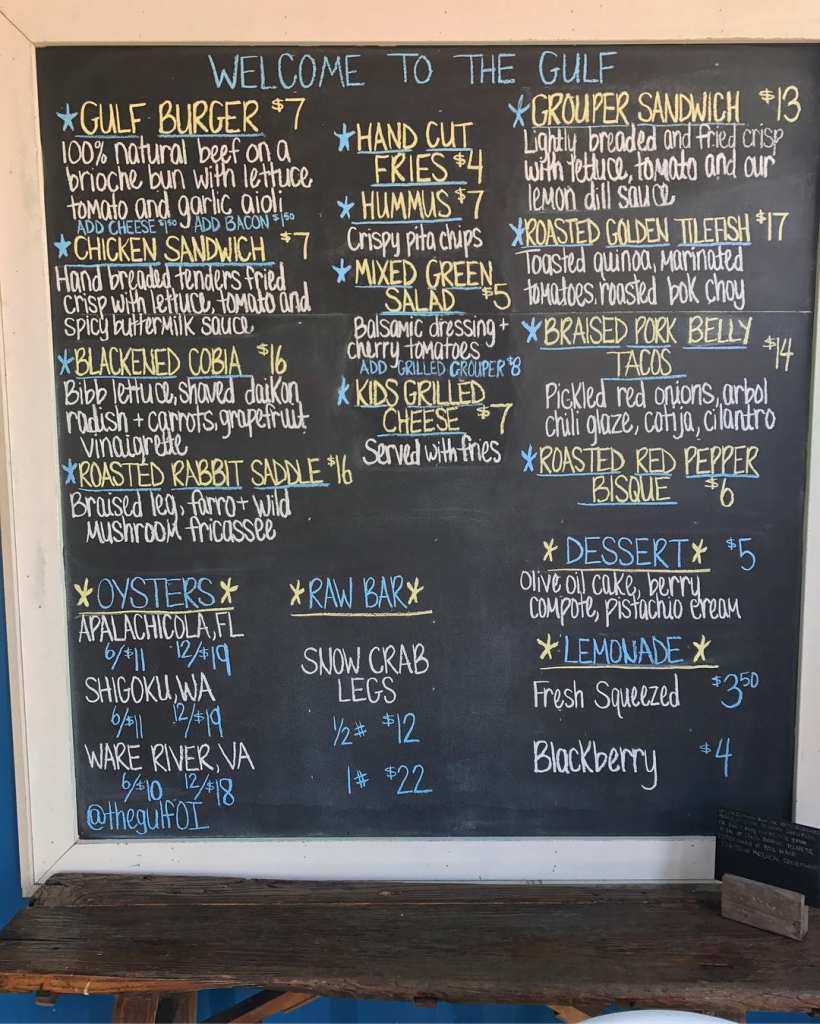 WELCOME TO THE GULF
*GULF BURGER $7
100% natural beef on a
brioche bun with lettuce
tomato and garlic aioli
ADD CHEESE $1.50 ADD BACON $1.50
*CHICKEN SANDWICH $7
Hand breaded tenders fried
crisp with lettuce, tomato and
spicy buttermilk sauce
*BLACKENED COBIA $16
Bibb lettuce, shaved daikon
radish + carrots, grapefruit
vinaigrette
*ROASTED RABBIT SADDLE $16
Braised leg, farro + wild
Mushroom fricassee
*HAND CUT
FRIES $4
*HUMMUS $7
Crispy pita chips
*MIXED GREEN
SALAD $5
Balsamic dressing +
cherry tomatoes
ADD GRILLED GROUPER $8
*KIDS GRILLED
CHEESE $7
Served with fries
*GROUPER SANDWICH $13
Lightly breaded and fried crisp
with lettuce, tomato and our
lemon dill sauce
*ROASTED GOLDEN TILEFISH $17
Toasted quinoa, marinated
tomatoes, roasted bok choy
*BRAISED PORK BELLY
TACOS $14
Pickled red onions, arbol
chili glaze, cotija, cilantro
*ROASTED RED PEPPER
BISQUE $6
*OYSTERS*
APALACHICOLA, FL
6/$11 12/$19
SHIGOKU, WA
6/$11 12/$19
WARE RIVER, VA
6/$10 12/$18
@thegulfOI
*RAW BAR*
SNOW CRAB
LEGS
1/2# $12
1# $22
*DESSERT* $5
Olive oil cake, berry
compote, pistachio cream
*LEMONADE*
Fresh Squeezed $3.50
Blackberry $4